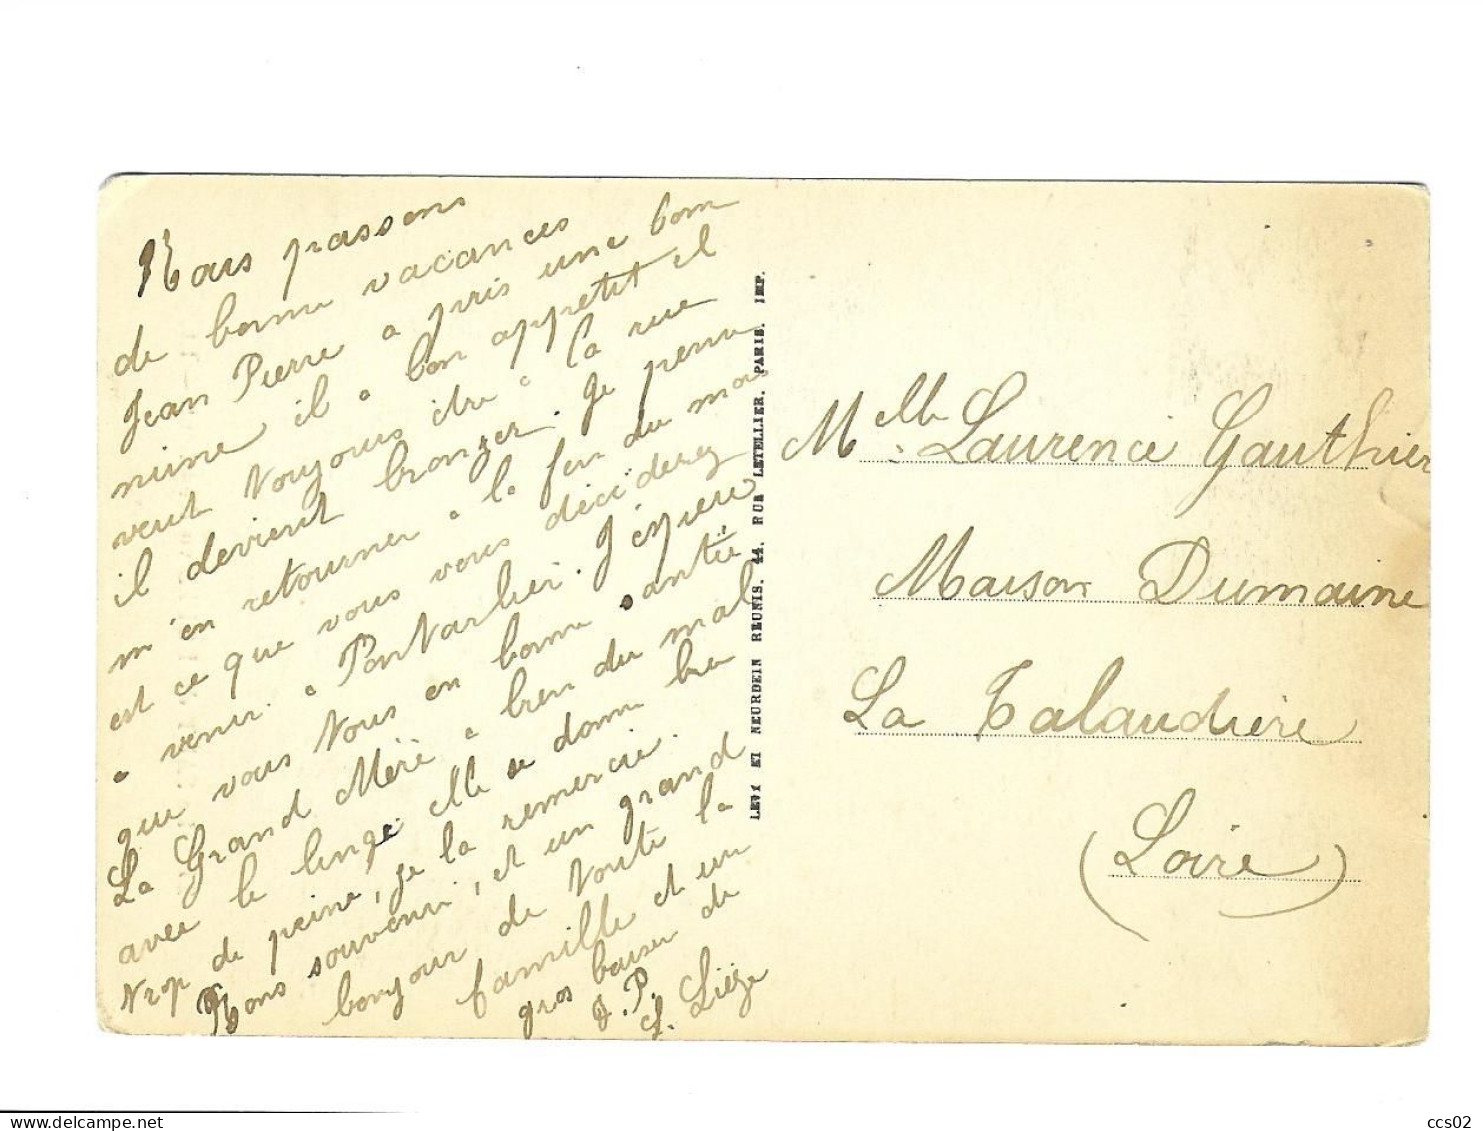 Nous passons
de bonne vacances
Jean Pierre a pris une bonn
mine il a bon appetit il
veut toujours etre à la rue
il devient bronzer. Je pense
m'en retourner à la fin du mois
est ce que vous vous déciderez
a venir a Pontarlier. J'éspere
que vous tous en bonne santée
La Grand Mère a bien du mal
avec le linge elle se donne bien
trop de peine, je la remercie.
Bons souvenir, et un grand
bonjour de toute la
famille et un
gros baiser de
J. P.
J. Liège
LEVY ET NEURDEIN REUNIS. 44. RUE LETELLIER. PARIS. IMP.
Melle Laurence Gauthier
Maison Dumaine
La Talaudière
(Loire)
ccs02